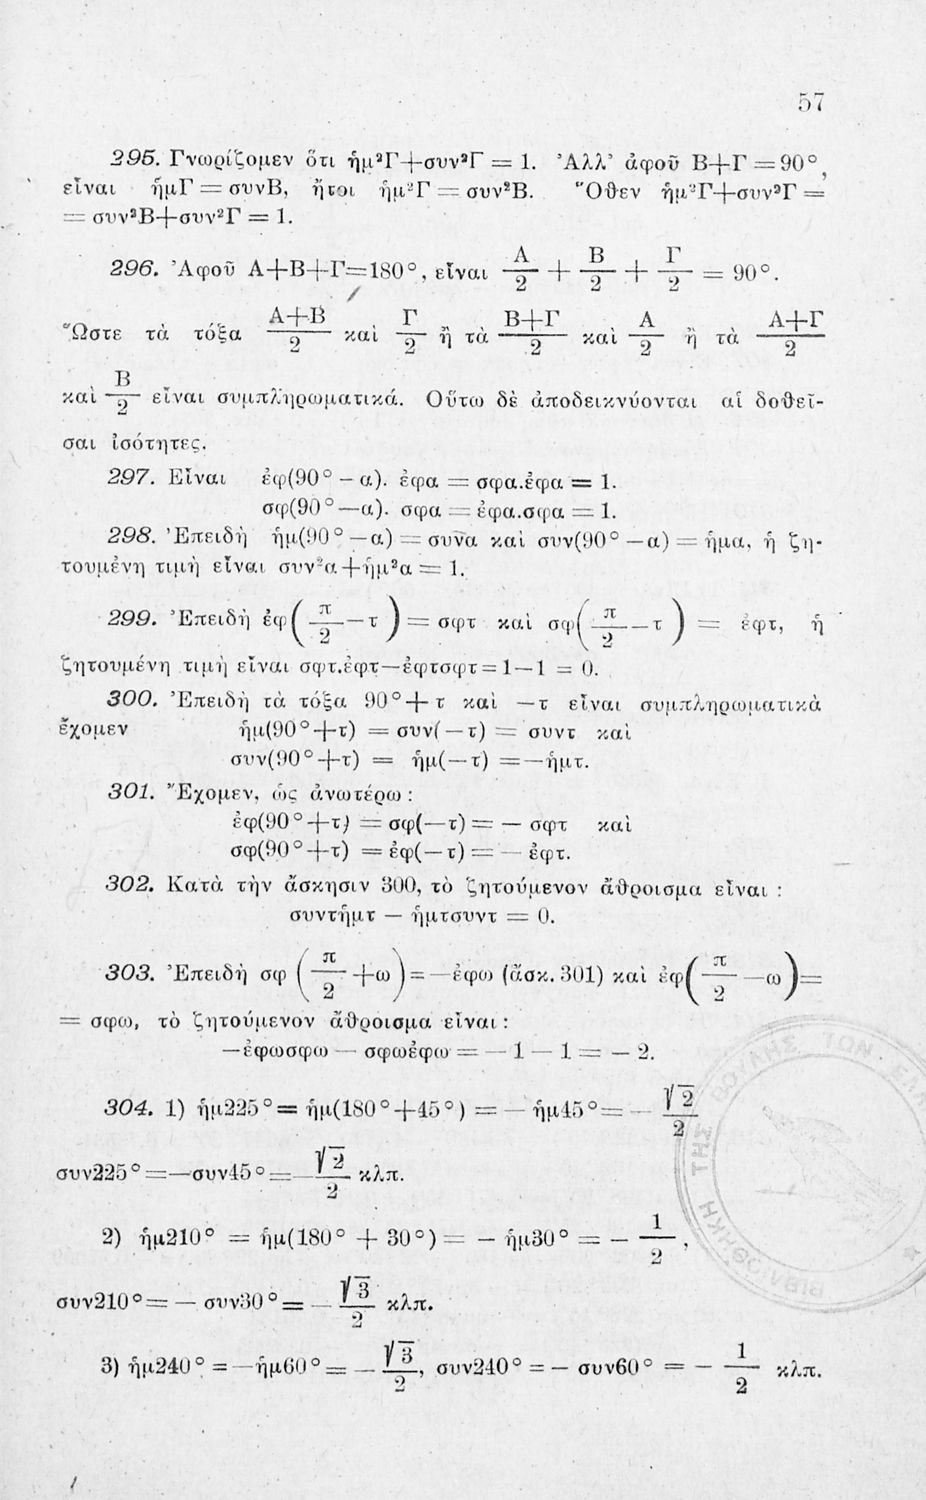 57
295. Γνωρίζομεν ὅτι ἡμ²Γ+συν²Γ = 1. Ἀλλ' ἀφοῦ Β+Γ = 90°,
εἶναι ἡμΓ = συνΒ, ἤτοι ἡμ²Γ = συν²Β. Ὅθεν ἡμ²Γ+συν²Γ =
= συν²Β+συν²Γ = 1.
296. Ἀφοῦ Α+Β+Γ=180°, εἶναι Α/2 + Β/2 + Γ/2 = 90°.
Ὥστε τὰ τόξα (Α+Β)/2 καὶ Γ/2 ἢ τὰ (Β+Γ)/2 καὶ Α/2 ἢ τὰ (Α+Γ)/2
καὶ Β/2 εἶναι συμπληρωματικά. Οὕτω δὲ ἀποδεικνύονται αἱ δοθεῖ-
σαι ἰσότητες.
297. Εἶναι ἐφ(90° – α). ἐφα = σφα.ἐφα = 1.
σφ(90°—α). σφα = ἐφα.σφα = 1.
298. Ἐπειδὴ ἡμ(90°—α) = συνα καὶ συν(90°—α) = ἡμα, ἡ ζη-
τουμένη τιμὴ εἶναι συν²α+ἡμ²α = 1.
299. Ἐπειδὴ ἐφ(π/2—τ) = σφτ καὶ σφ(π/2—τ) = ἐφτ, ἡ
ζητουμένη τιμὴ εἶναι σφτ.ἐφτ—ἐφτσφτ=1—1 = 0.
300. Ἐπειδὴ τὰ τόξα 90°+τ καὶ —τ εἶναι συμπληρωματικὰ
ἔχομεν ἡμ(90°+τ) = συν(—τ) = συντ καὶ
συν(90°+τ) = ἡμ(—τ) =—ἡμτ.
301. Ἔχομεν, ὡς ἀνωτέρω :
ἐφ(90°+τ) = σφ(—τ) = — σφτ καὶ
σφ(90°+τ) = ἐφ(—τ) = — ἐφτ.
302. Κατὰ τὴν ἄσκησιν 300, τὸ ζητούμενον ἄθροισμα εἶναι :
συντἡμτ — ἡμτσυντ = 0.
303. Ἐπειδὴ σφ (π/2+ω)=—ἐφω (ἄσκ. 301) καὶ ἐφ(π/2—ω)=
= σφω, τὸ ζητούμενον ἄθροισμα εἶναι :
—ἐφωσφω — σφωἐφω = — 1 — 1 = — 2.
304. 1) ἡμ225°= ἡμ(180°+45°) = — ἡμ45°= — √2/2
συν225°=—συν45°=—√2/2 κλπ.
2) ἡμ210° = ἡμ(180° + 30°) = — ἡμ30° = — 1/2,
συν210°= — συν30°= — √3/2 κλπ.
3) ἡμ240° = —ἡμ60°= — √3/2, συν240° = — συν60° = — 1/2 κλπ.
ΒΙΒΛΙΟΘΗΚΗ ΤΗΣ ΒΟΥΛΗΣ ΤΩΝ